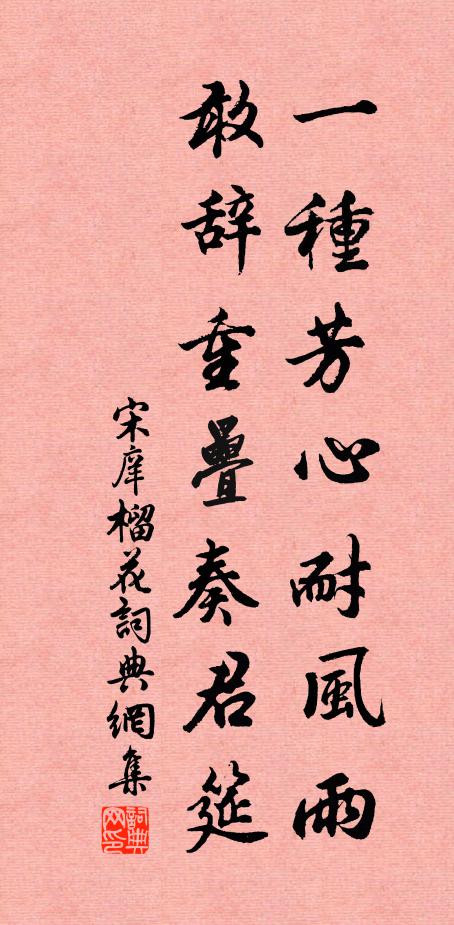 一種芳心耐風雨
敢辞重疊奏君筵
宋庠榴花詞典網集
詞典网印